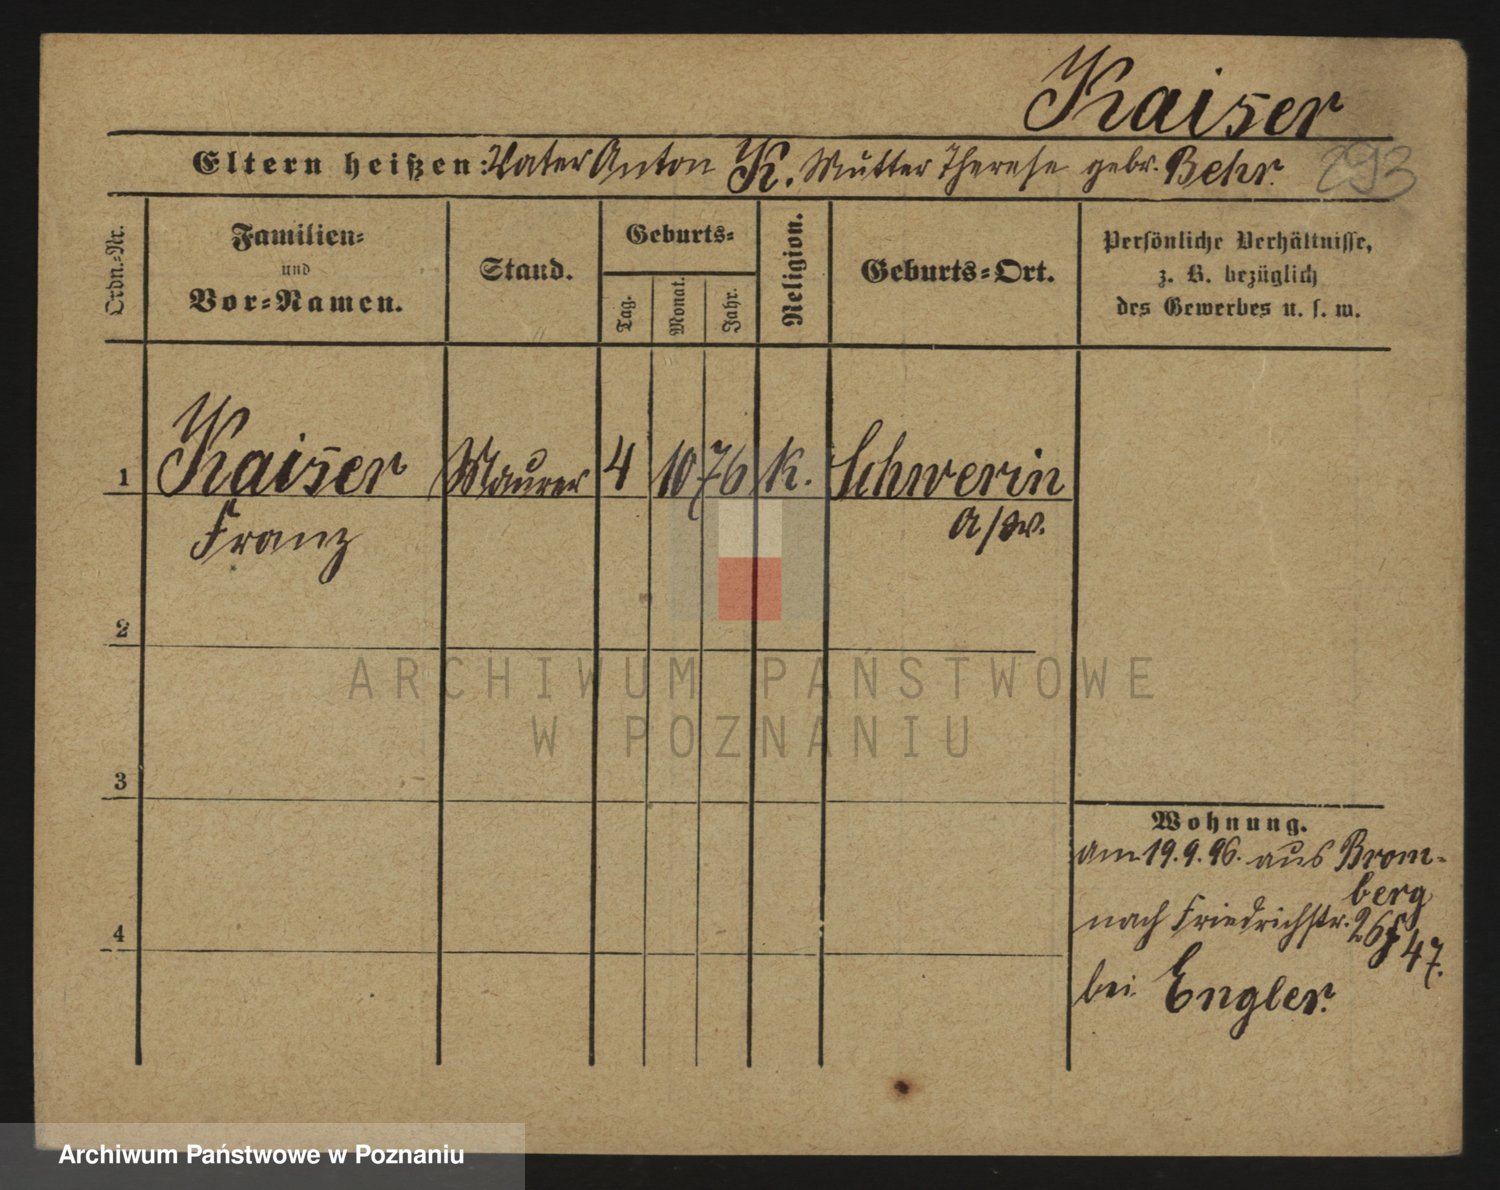 Kaiser
Eltern heißen: Vater Anton K. Mutter Therese gebr. Behr. 293
Ordn.-Nr.
Familien-
und
Vor-Namen.
Stand.
Geburts-
Tag.
Monat.
Jahr.
Religion.
Geburts-Ort.
Persönliche Verhältnisse,
z. B. bezüglich
des Gewerbes u. s. w.
1 Kaiser Maurer 4 10 76 K. Schwerin
Franz a/W.
2
ARCHIWUM PAŃSTWOWE
W POZNANIU
3
Wohnung.
am 19.9.96. aus Brom-
berg
nach Friedrichstr. 26
47.
4
bei Engler.
Archiwum Państwowe w Poznaniu